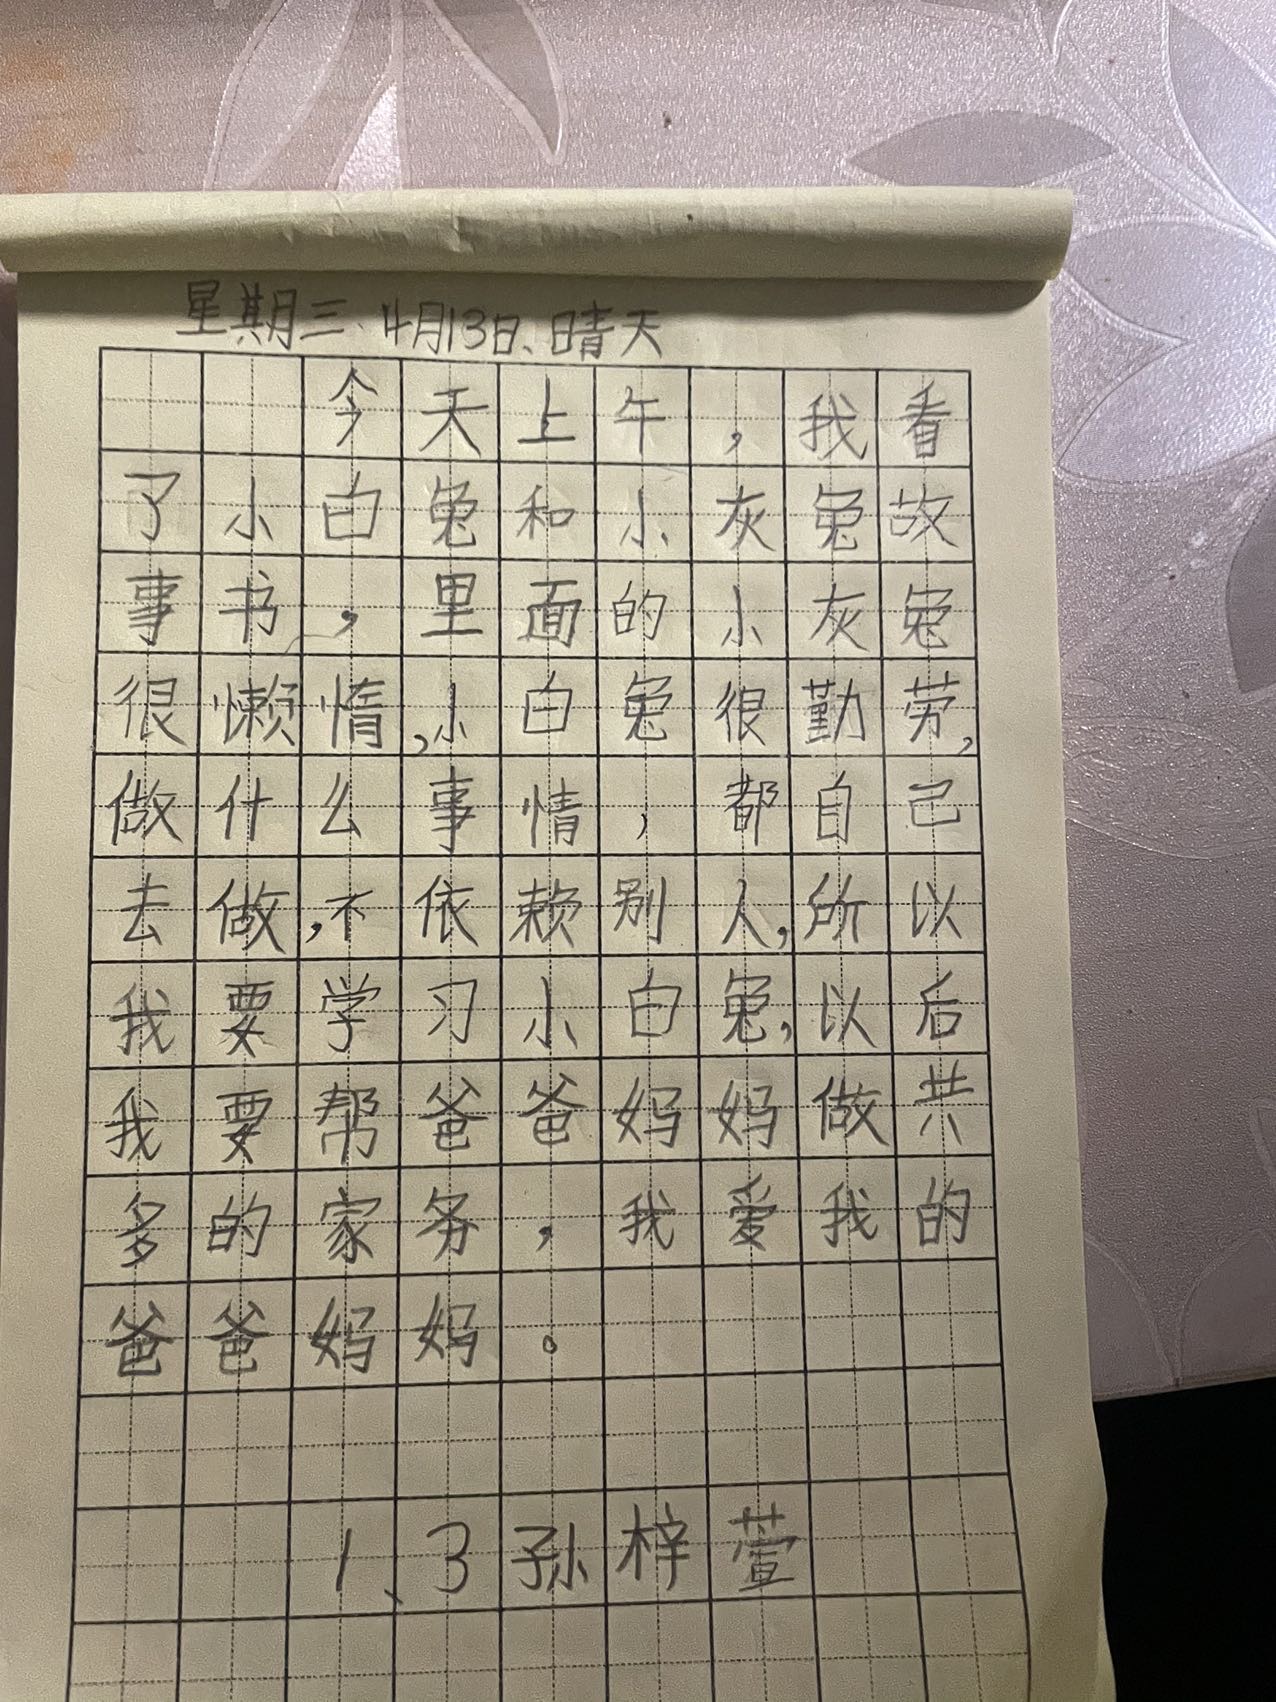 星期三、4月13日、晴天
今天上午，我看
了小白兔和小灰兔故
事书，里面的小灰兔
很懒惰，小白兔很勤劳，
做什么事情，都自己
去做，不依赖别人，所以
我要学习小白兔，以后
我要帮爸爸妈妈做共
多的家务，我爱我的
爸爸妈妈。
1、3孙梓萱